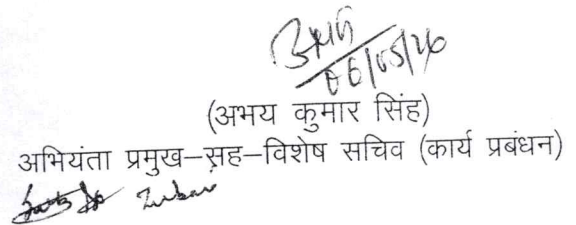 अभय
06/05/26
(अभय कुमार सिंह)
अभियंता प्रमुख–सह–विशेष सचिव (कार्य प्रबंधन)